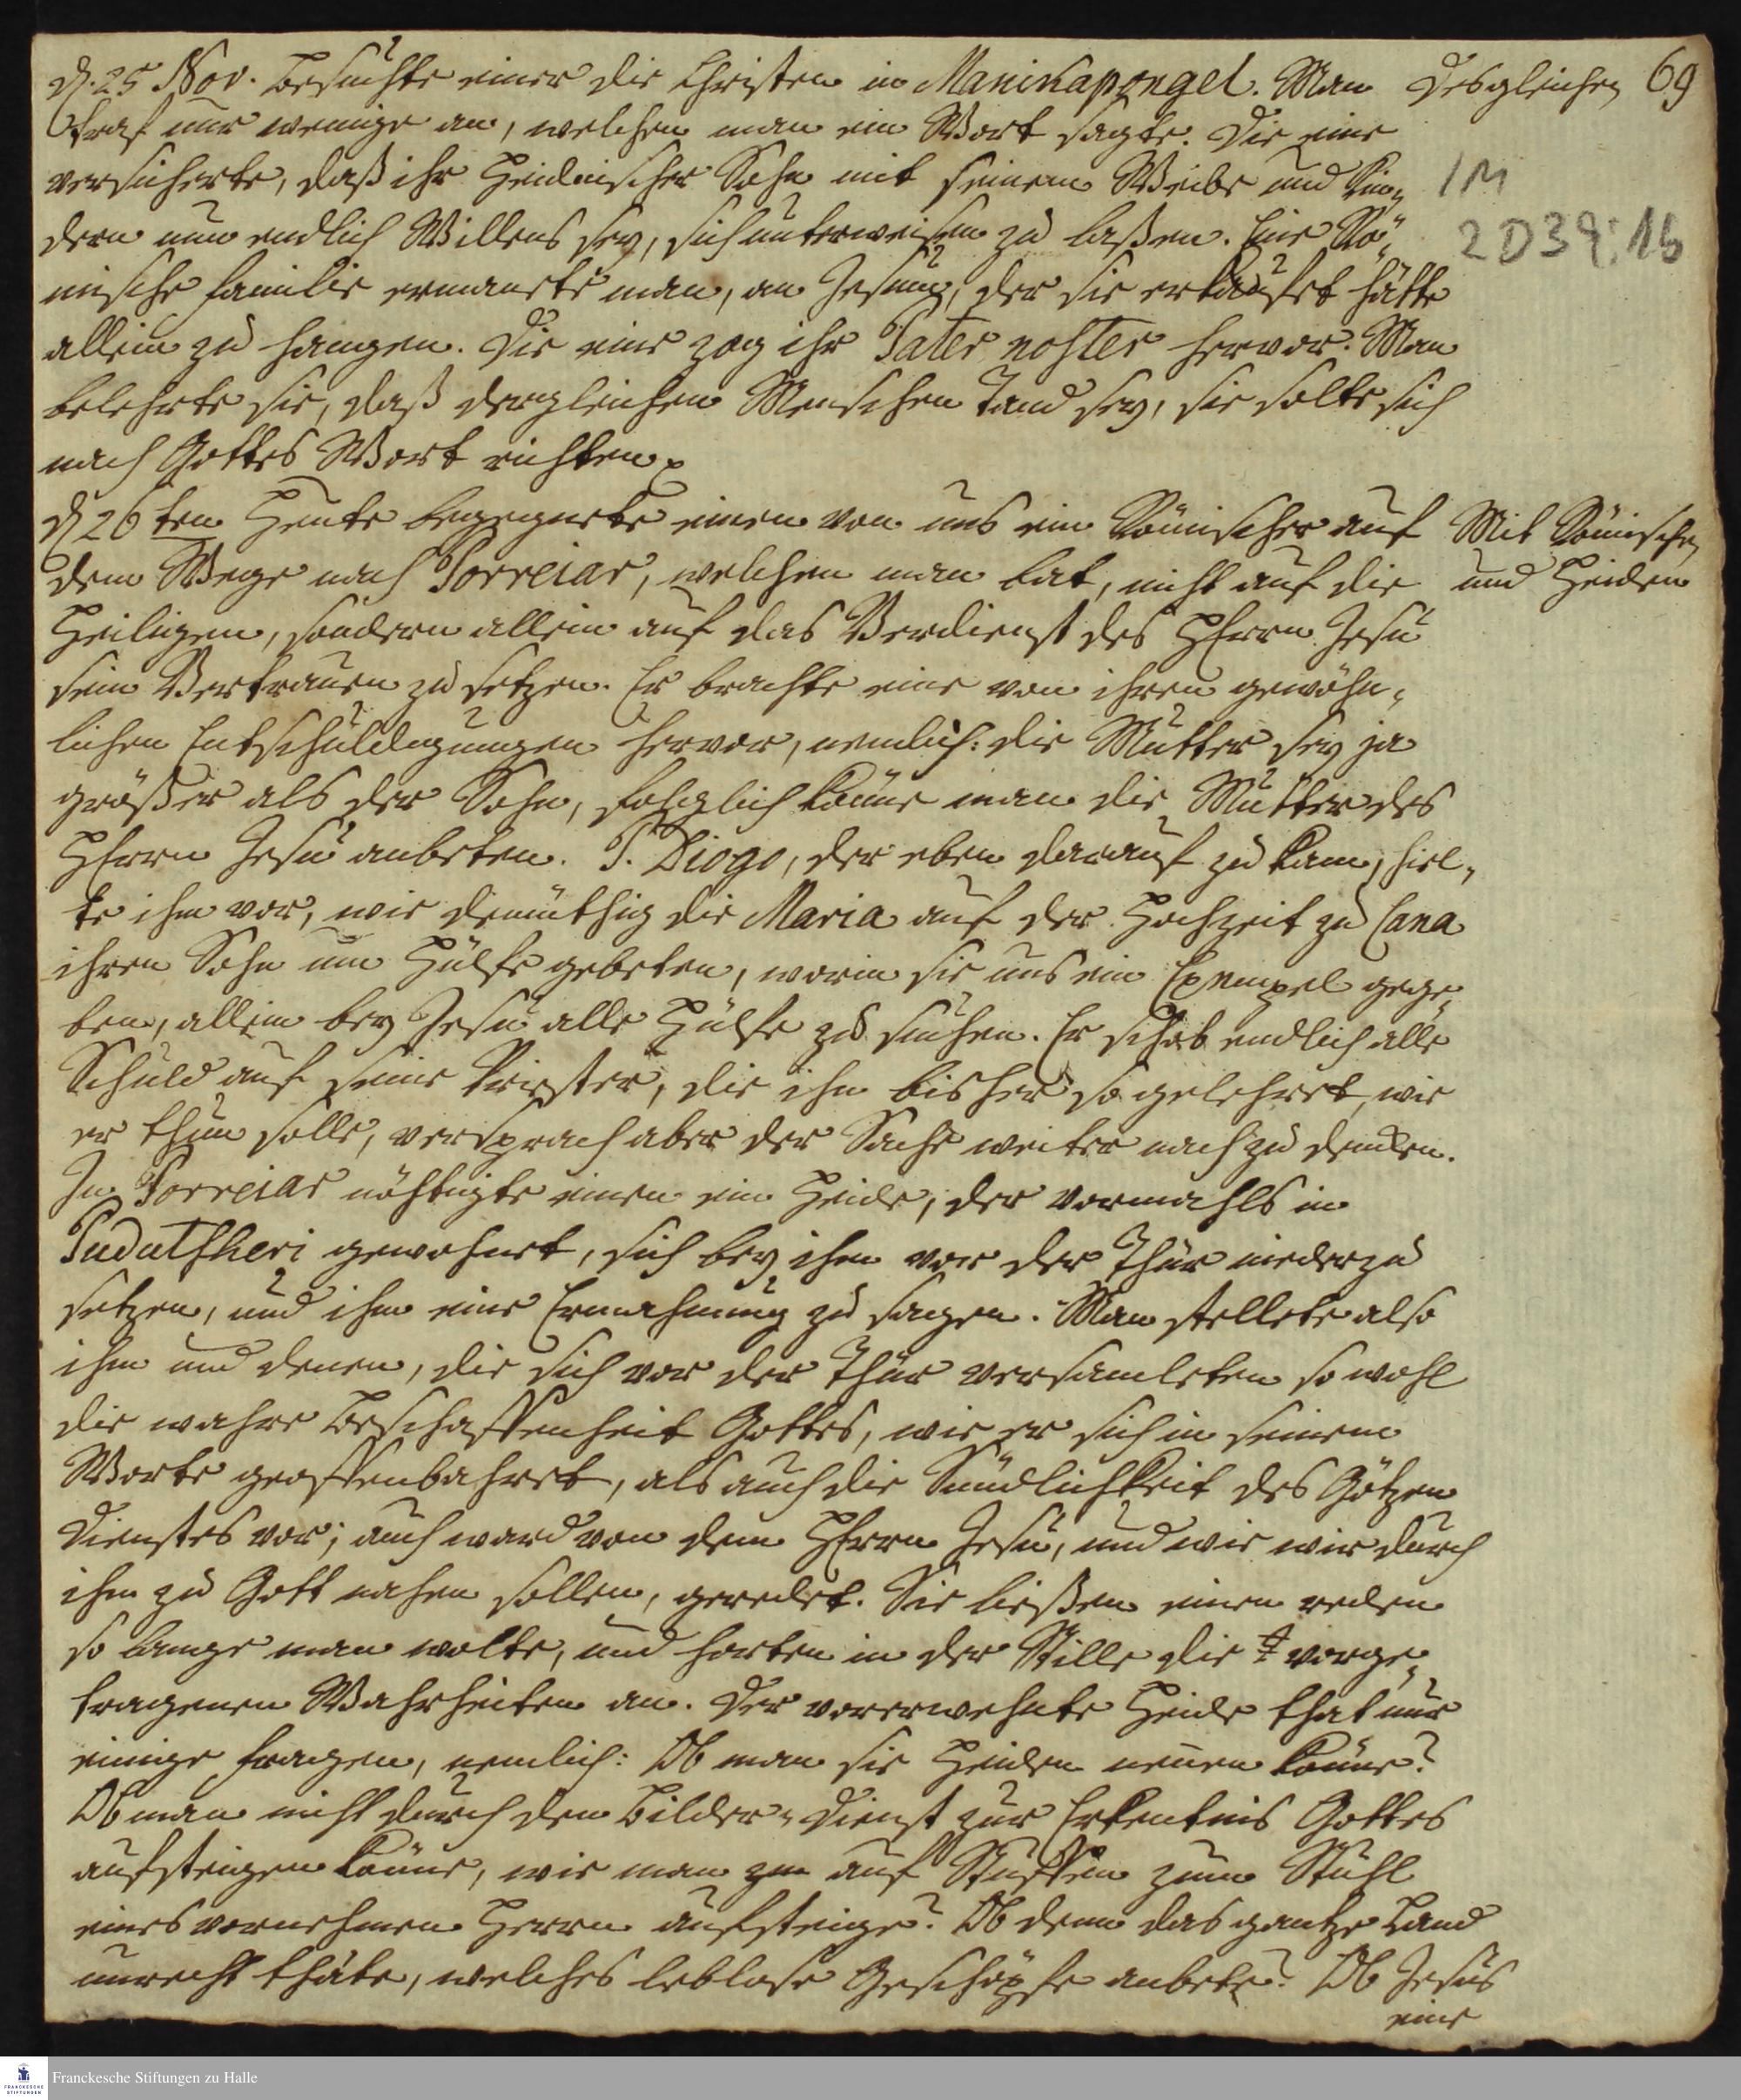 69
d. 25 Nov. besuchte einer die Christen in Manikapongel. Man
Desgleichen
traf nur wenige an, welchen man ein Wort sagte. Die eine
versicherte, daß ihr Heidnischer Sohn mit seinem Weibe und Kin-
1M
dern nun endlich Willens sey, sich unterweisen zu laßen. Eine Rö-
2D39:16
mische Familie ermante man, an Jesum, der sie erkauffet hätte
allein zu hangen. Die eine zog ihr Pater noster hervor. Man
belehrte sie, daß dergleichen Menschen Tand sey, sie solte sich
nach Gottes Wort richten.
d 26ten Heute begegnete einem von uns ein Römischer auf
Mit Römischen
dem Wege nach Porreiar, welchen man bat, nicht auf die
und Heiden
Heiligen, sondern allein auf das Verdienst des HErrn Jesu
sein Vertrauen zu setzen. Er brachte eine von ihren gewöhn-
lichen Entschuldigungen hervor, nemlich: die Mutter sey ja
größer als der Sohn, folglich könne man die Mutter des
HErrn Jesu anbeten. P. Diogo, der eben darauf zu kam, hiel-
te ihm vor, wie demüthig die Maria auf der Hochzeit zu Cana
ihren Sohn um Hülfe gebeten, worin sie uns ein Exempel gege-
ben, allein bey Jesu alle Hülfe zu suchen. Er schob endlich alle
Schuld auf seine Priester, die ihn bisher so gelehret, wie
er thun solle, versprach aber der Sache weiter nach zu dencken.
In Porreiar nöthigte einen ein Heide, der vormahls in
Pudutscheri gewohnet, sich bey ihm vor der Thür nieder zu
setzen, und ihm eine Ermahnung zu sagen. Man stellete also
ihm und denen, die sich vor der Thür versamleten so wohl
die wahre Beschaffenheit Gottes, wie er sich in seinem
Worte geoffenbahret, als auch die Sündlichkeit des Götzen
Dienstes vor; auch ward von dem HErrn Jesu, und wie wir durch
ihn zu Gott nahen sollen, geredet. Sie ließen einen reden
so lange man wolte, und horten in der Stille die vorge-
tragenen Wahrheiten an. Der vorerwehnte Heide that nur
einige Fragen, nemlich: Ob man sie Heiden nennen könne?
Ob man nicht durch den Bilder-Dienst zur Erkentnis Gottes
aufsteigen könne, wie man auf Stuffen zum Stuhl
eines vornehmen Herrn aufsteige? Ob denn das gantze Land
unrecht thäte, welches leblose Geschöpfe anbete? Ob Jesus
eine
FRANCKESCHE
STIFTUNGEN
Franckesche Stiftungen zu Halle